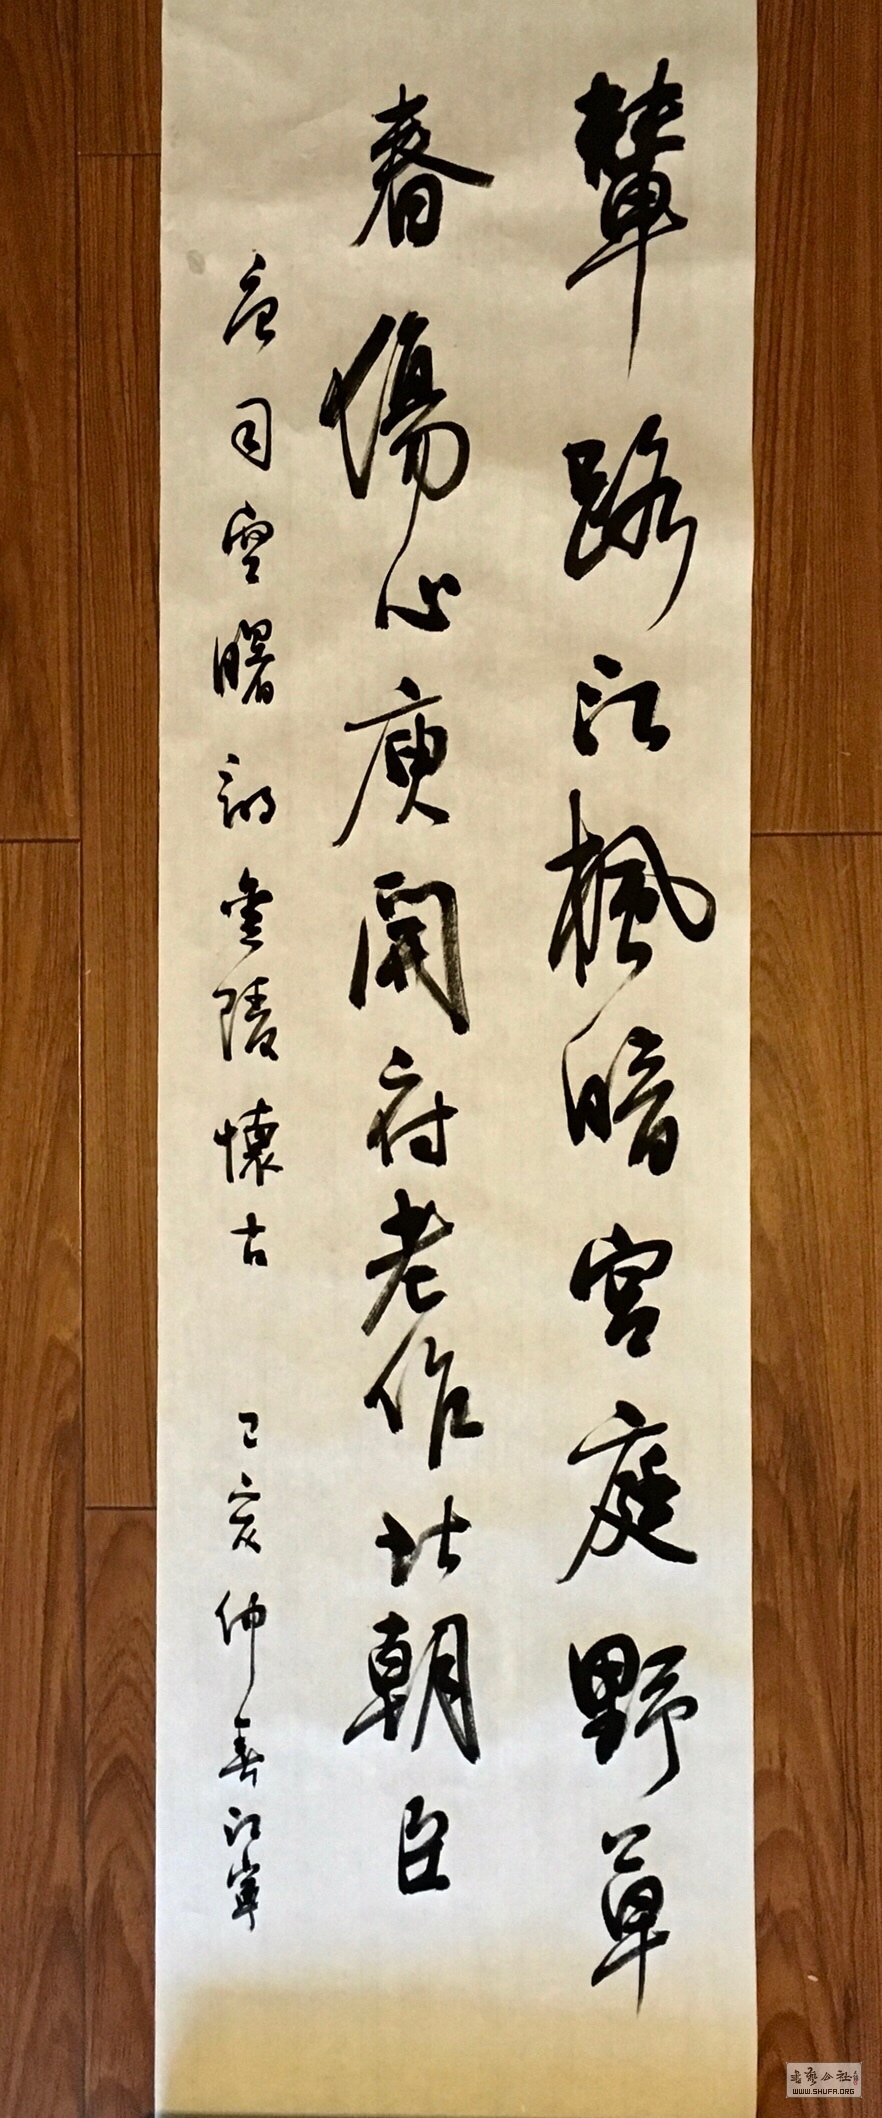 輦路江楓暗宮庭野草
春傷心庾開府老作北朝臣
唐司空曙詞金陵懷古
己亥仲春江寧
書藝公社
WWW.SHUFA.ORG